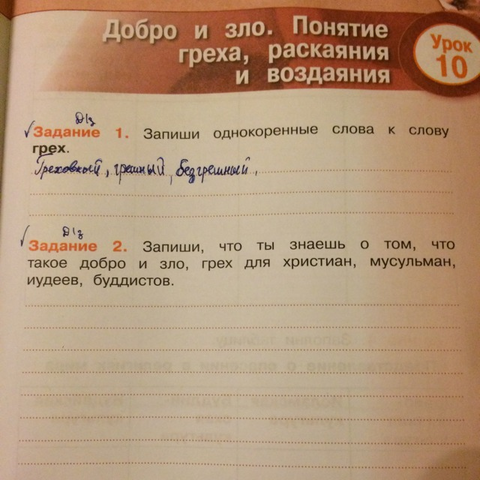 Добро и зло. Понятие
греха, раскаяния
и воздаяния
Урок
10
Д/з
Задание 1. Запиши однокоренные слова к слову
грех.
Греховный, грешный, безгрешный,
Д/з
Задание 2. Запиши, что ты знаешь о том, что
такое добро и зло, грех для христиан, мусульман,
иудеев, буддистов.